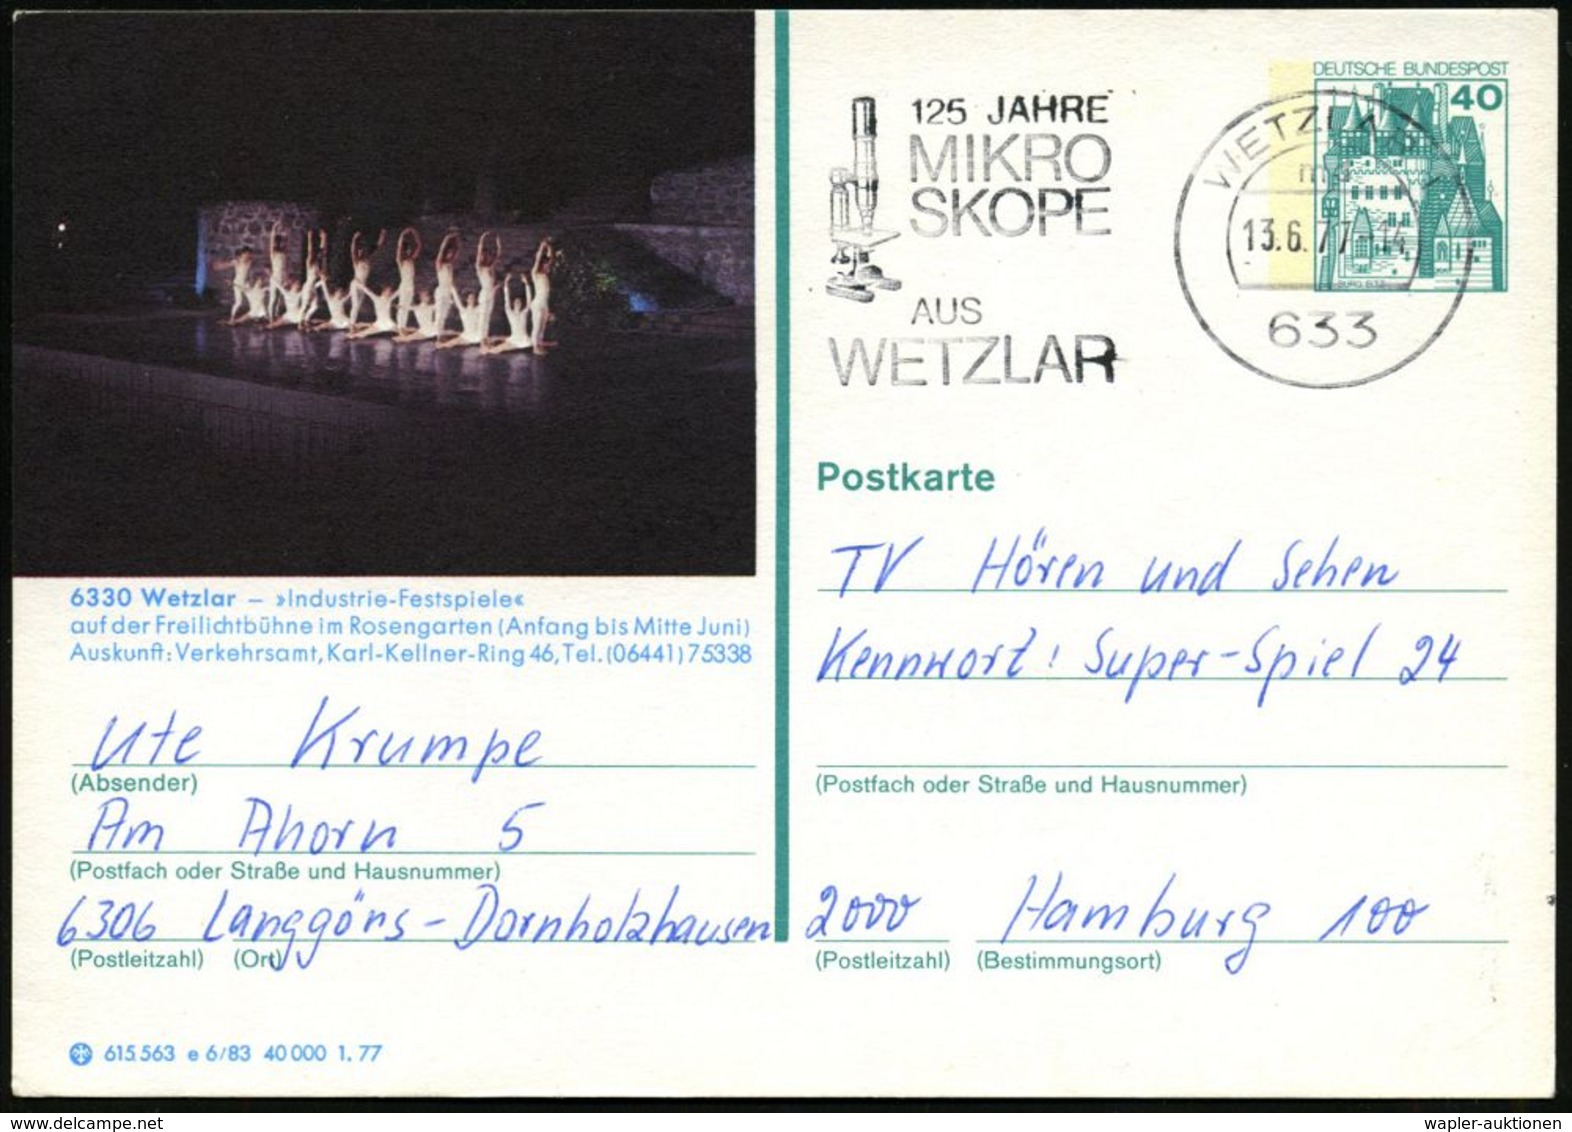 DEUTSCHE BUNDESPOST
40
125 JAHRE
MIKRO
SKOPE
AUS
WETZLAR
WETZLAR 1
13.6.77-14
633
BURG ELTZ
Postkarte
TV Hören und Sehen
Kennwort: Super-Spiel 24
(Postfach oder Straße und Hausnummer)
2000 Hamburg 100
(Postleitzahl) (Bestimmungsort)
6330 Wetzlar – »Industrie-Festspiele«
auf der Freilichtbühne im Rosengarten (Anfang bis Mitte Juni)
Auskunft: Verkehrsamt, Karl-Kellner-Ring 46, Tel. (06441) 75338
Ute Krumpe
(Absender)
Am Ahorn 5
(Postfach oder Straße und Hausnummer)
6306 Langgöns-Dornholzhausen
(Postleitzahl) (Ort)
615.563 e 6/83 40 000 1.77
wapler-auktionen